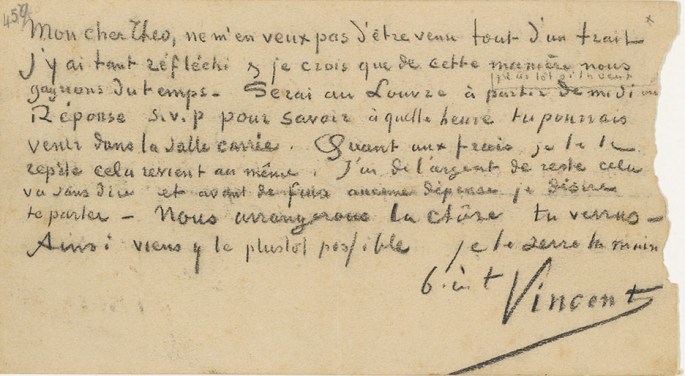 459
Mon cher Theo, ne m'en veux pas d'être venu tout d'un trait
J'y ai tant réfléchi & je crois que de cette manière nous
gagnons du temps – Serai au Louvre à partir de midi ou
plustot si tu veux
Réponse s.v.p pour savoir à quelle heure tu pourrais
venir dans la salle carrée. Quant aux frais je te le
repète cela revient au même. J'ai de l'argent de reste cela
va sans dire et avant de faire aucune dépense je désire
te parler – Nous arrangerons la chôse tu verras –
Ainsi viens y le plustôt possible je te serre la main
b. à t
Vincent